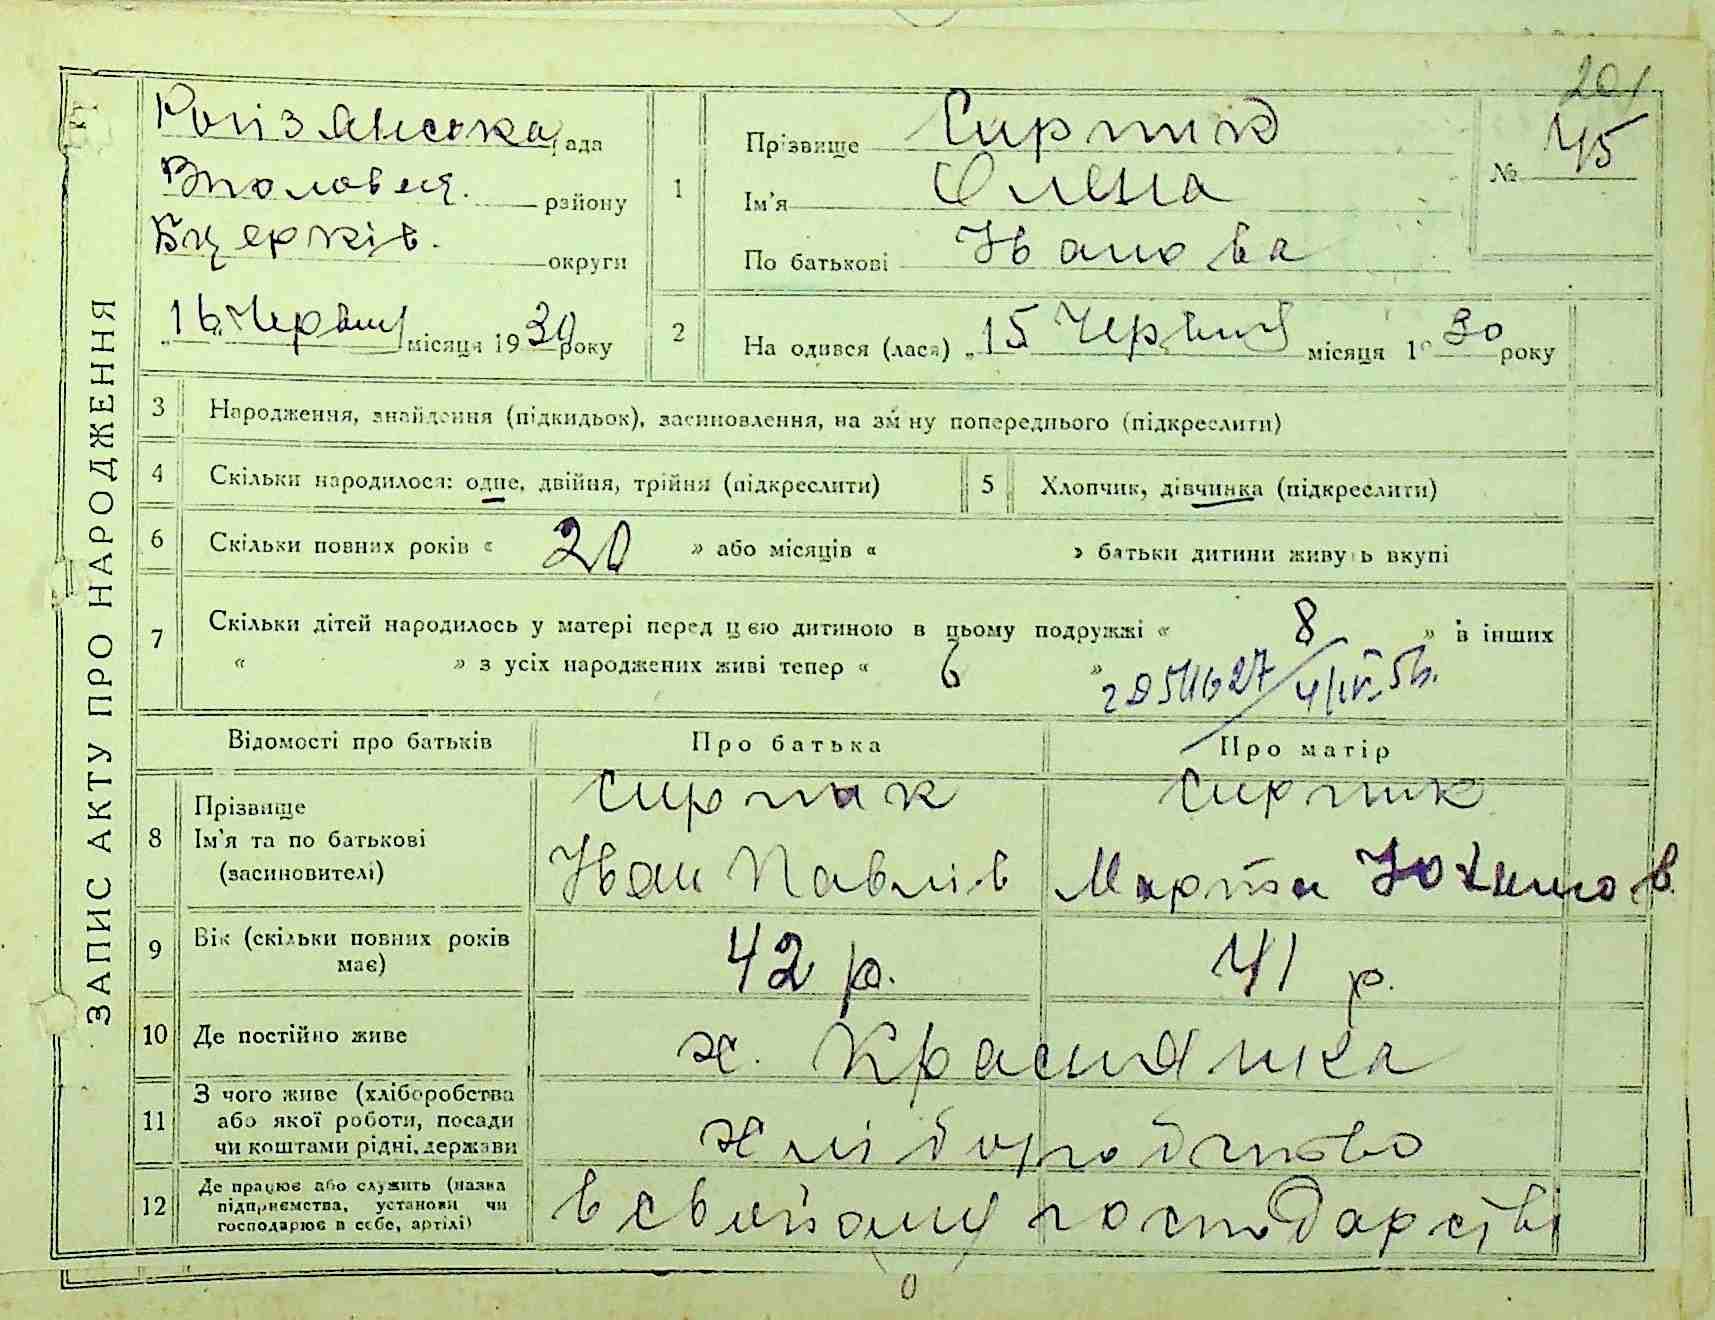 201
ЗАПИС АКТУ ПРО НАРОДЖЕННЯ
Рогізянська рада
Вполовец. району
Бцерків. округи
„16„ Червня місяця 1930 року
1
Прізвище Сирпик
Ім'я Олена
По батькові Іванова
№ 45
2
На одився (лася) „15 Червня місяця 1930 року
3 Народження, знайдення (підкидьок), засиновлення, на зміну попереднього (підкреслити)
4 Скільки народилося: одне, двійня, трійня (підкреслити)
5 Хлопчик, дівчинка (підкреслити)
6 Скільки повних років « 20 » або місяців « » батьки дитини живуть вкупі
7 Скільки дітей народилось у матері перед цією дитиною в цьому подружжі « 8 » в інших
« » з усіх народжених живі тепер « 6 »
Відомості про батьків Про батька Про матір
8 Прізвище
Ім'я та по батькові
(засиновителі)
Сирпик
Іван Павлів
Сирпик
Марта
9 Вік (скільки повних років
має)
42 р. 41 р.
10 Де постійно живе х. Краснянка
11 З чого живе (хліборобства
або якої роботи, посади
чи коштами рідні, держави
хліборобство
12 Де працює або служить (назва
підприємства, установи чи
господарює в себе, артілі)
в свойому господарстві